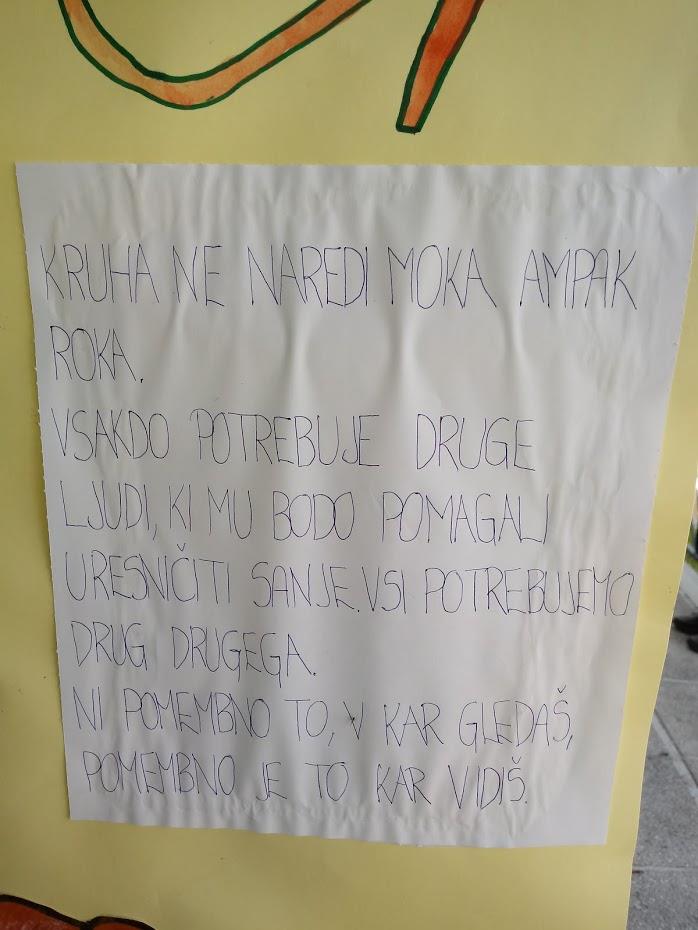 KRUHA NE NAREDI MOKA AMPAK
ROKA.
VSAKDO POTREBUJE DRUGE
LJUDI, KI MU BODO POMAGALI
URESNIČITI SANJE. VSI POTREBUJEMO
DRUG DRUGEGA.
NI POMEMBNO TO, V KAR GLEDAŠ,
POMEMBNO JE TO KAR VIDIŠ.